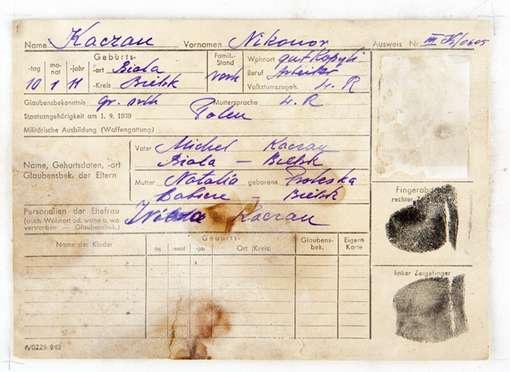 Name Kaczan Vornamen Nikonor Ausweis Nr. III
Geburts- Famil.- Stand Wohnort gut Kopyli
-tag mo-nat -jahr -ort Biala Beruf Arbeiter
10 1 11 -Kreis Bielsk verh Volkstumszugeh. U. R
Glaubensbekenntnis gr. orth Muttersprache U. R
Staatsangehörigkeit am 1. 9. 1939 Polen
Militärische Ausbildung (Waffengattung)
Name, Geburtsdaten, -ort Glaubensbek. der Eltern
Vater Michel Kaczan
Biala — Bielsk
Mutter Natalia geborene
Bielsk
Personalien der Ehefrau
(auch Wohnort od. wenn verstorben — Glaubensbek.)
Kaczan
Fingerabdruck
rechter
linker Zeigefinger
Name der Kinder Geburts- Glaubens-bek. Eigene Karte
-tag monat -jahr Ort (Kreis)